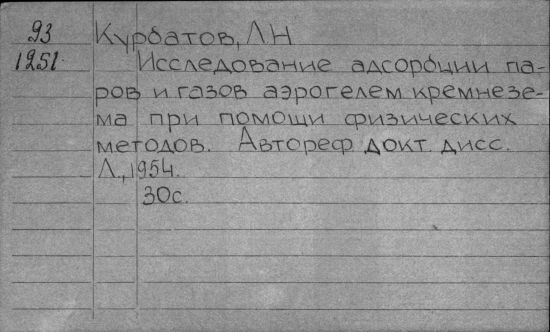 93 Курбатов, Л Н
1251 Исследование адсорбции па-
ров и газов аэрогелем кремнезе-
ма при помощи физических
методов. Автореф докт. дисс.
Л., 1954.
30с.